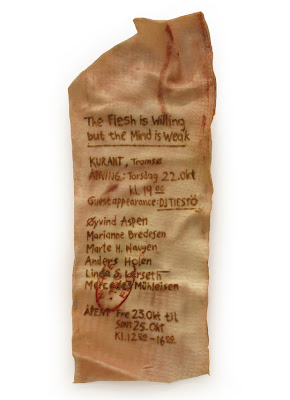 The Flesh is Willing
but the Mind is Weak
KURANT, Tromsø
ÅPNING: Torsdag 22.Okt
kl. 19 00
Guest appearance: DJ TIESTÖ
Øyvind Aspen
Marianne Bredesen
Marte H. Haugen
Anders Holen
Linda S. Lerseth
Mercedes Mühleisen
ÅPENT Fre 23.Okt til
Søn 25.Okt
Kl. 12 00 - 16 00